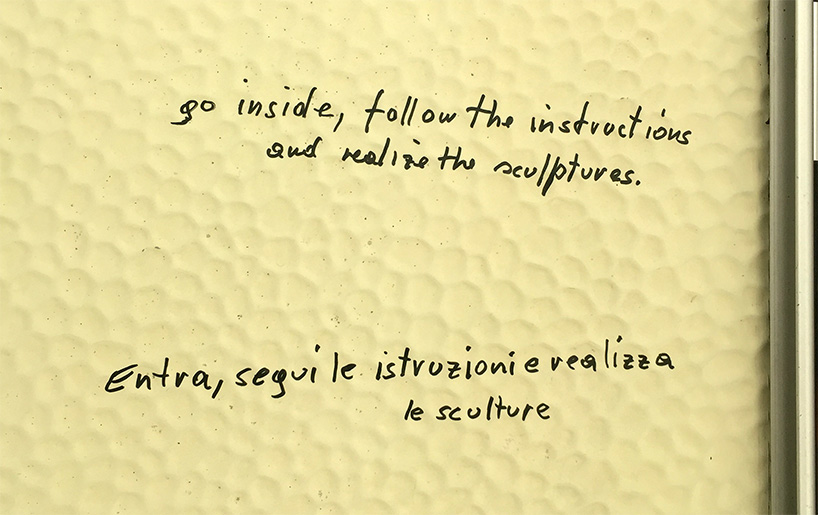 go inside, follow the instructions
and realize the sculptures.
Entra, segui le istruzioni e realizza
le sculture